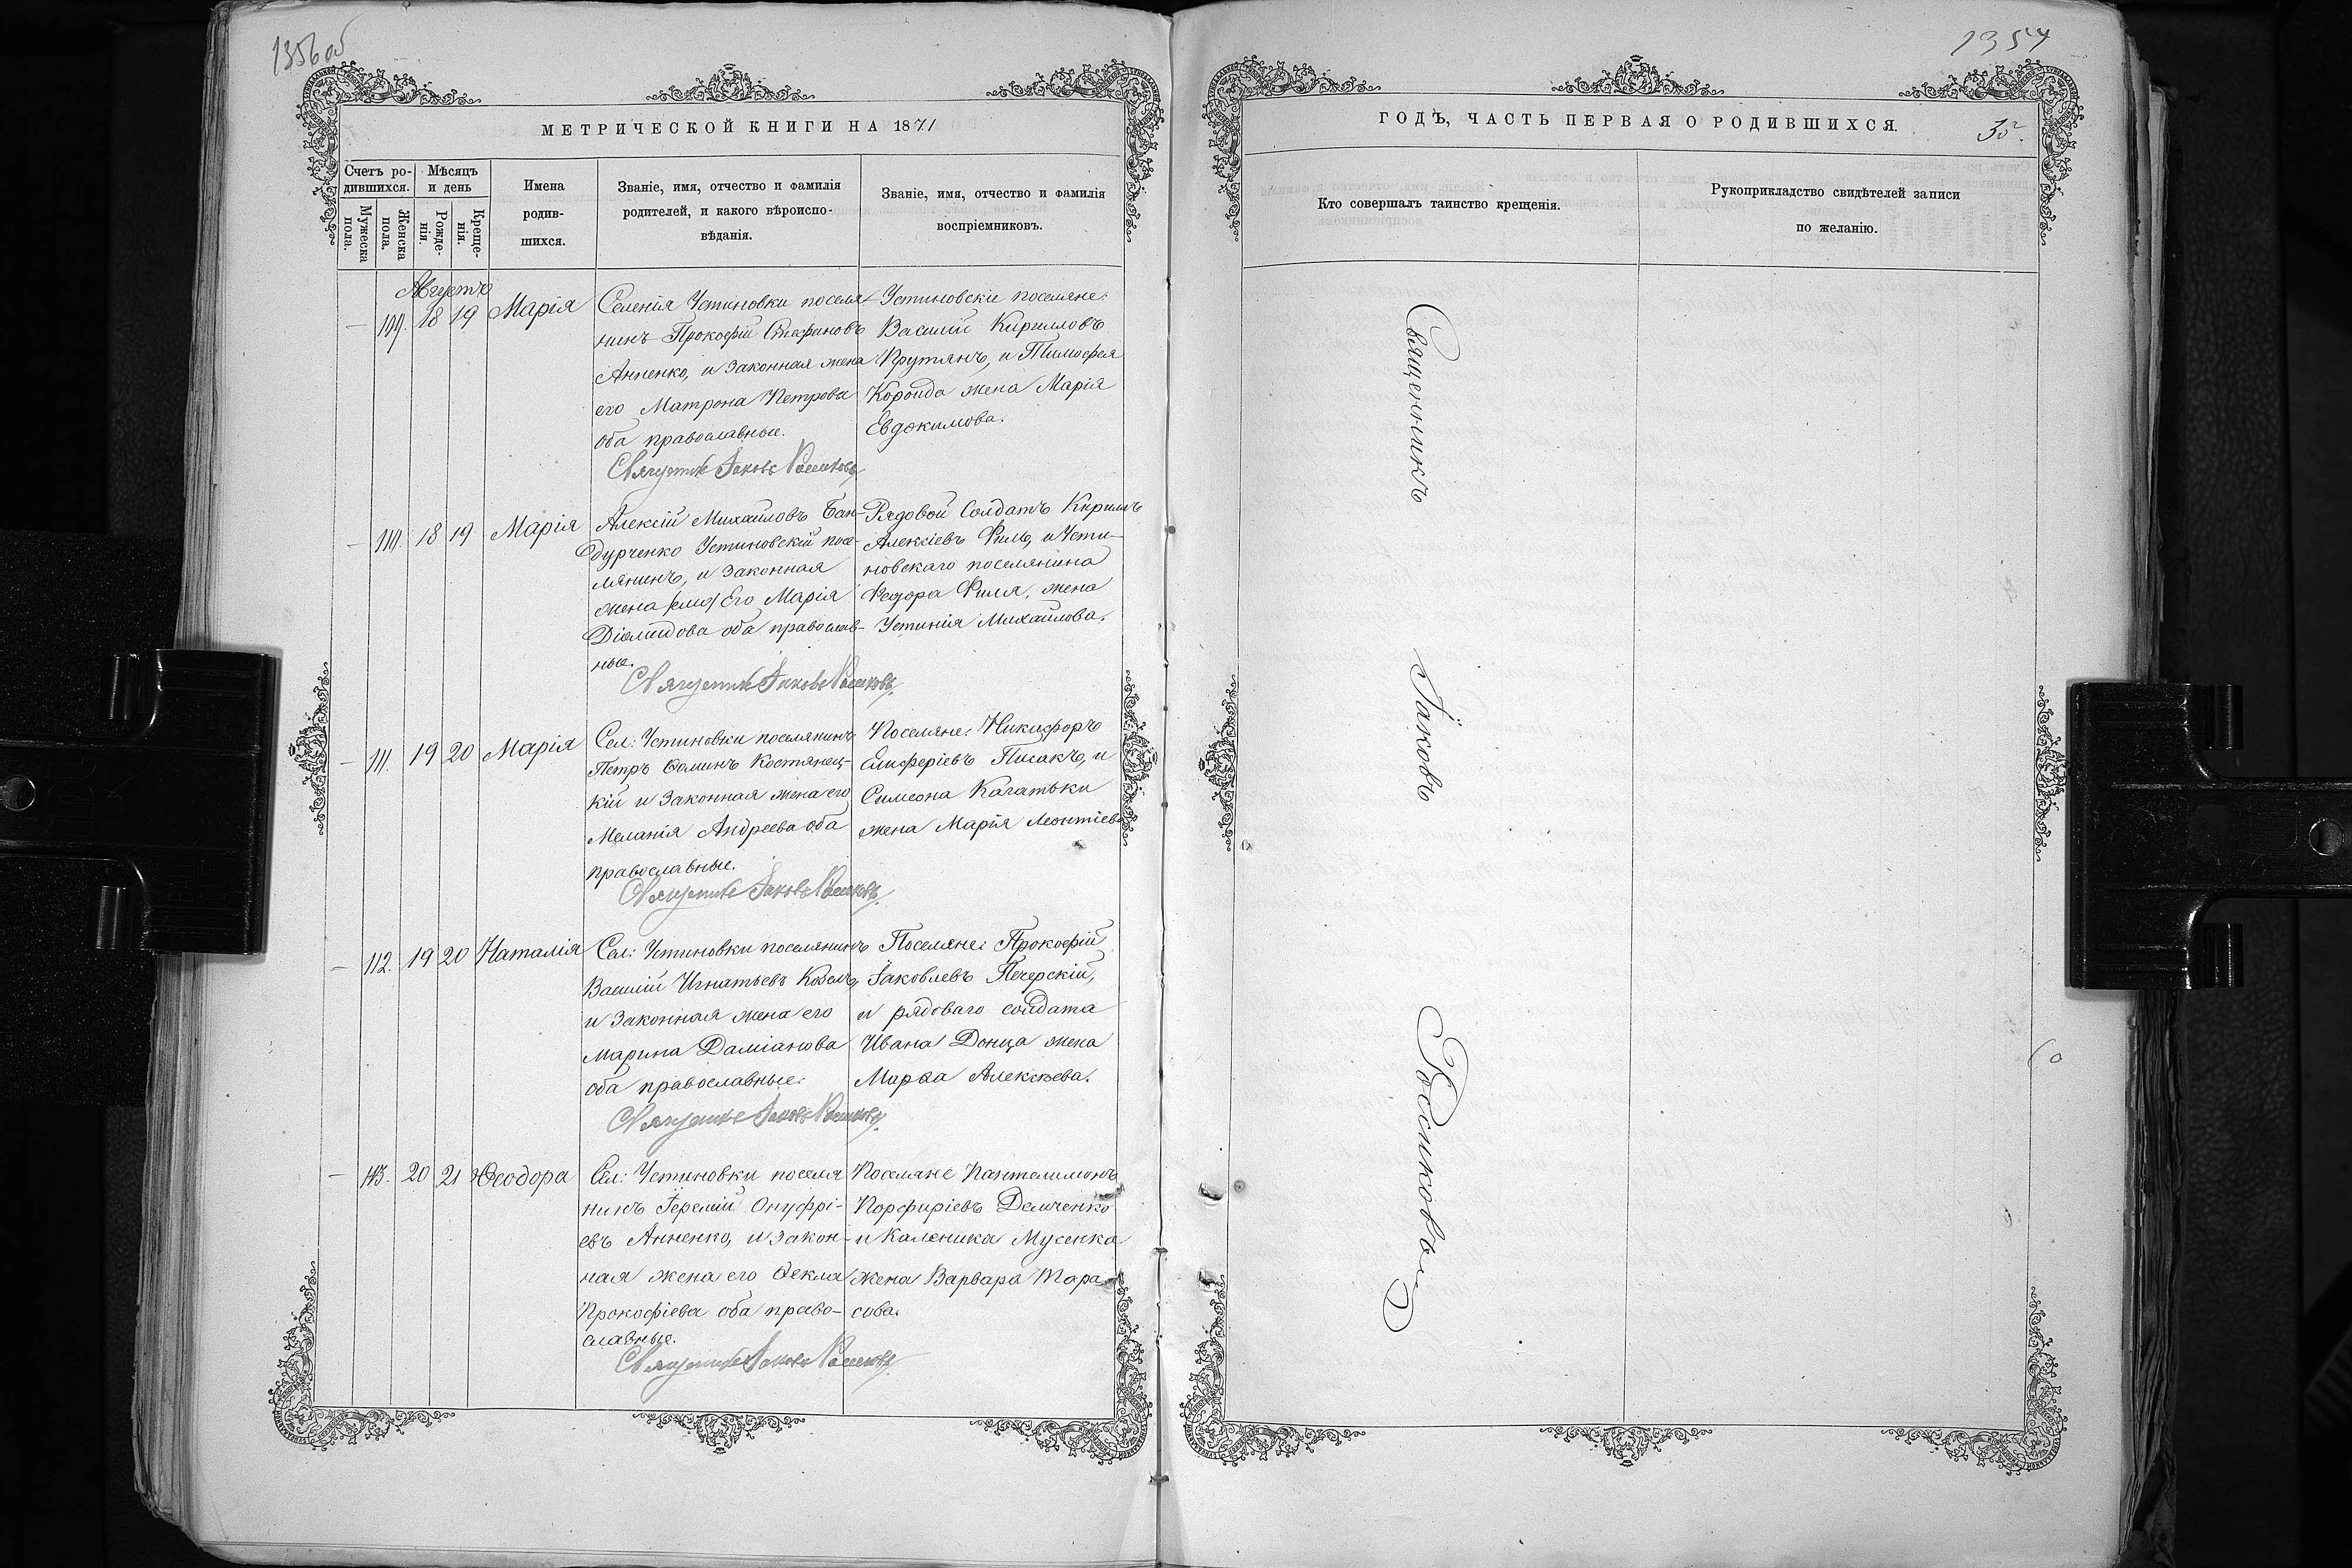 1356об
МЕТРИЧЕСКОЙ КНИГИ НА 1871
Счетъ ро-
дившихся.
Мѣсяцъ
и день
Мужеска
пола.
Женска
пола.
Рожде-
нія.
Креще-
нія.
Имена
родив-
шихся.
Званіе, имя, отчество и фамилія
родителей, и какого вѣроиспо-
вѣданія.
Званіе, имя, отчество и фамилія
воспріемниковъ.
Августъ
— 109. 18 19 Марія
Селенія Устиновки поселя-
нинъ Прокофій Стефановъ
Анненко, и законная жена
его Матрона Петрова
оба православные.
Священникъ Іаковъ Росиковъ
Устиновскіе поселяне:
Василій Кирилловъ
Прутянъ, и Тимофея
Короида жена Марія
Евдокимова.
— 110. 18 19 Марія
Алексій Михайловъ Бан-
дурченко Устиновскій посе-
лянинъ, и законная
жена Его Марія
Діомидова оба православ-
ные.
Священникъ Іаковъ Росиковъ
Рядовой Солдатъ Кирилъ
Алексіевъ Филь, и Усти-
новскаго поселянина
Федора Филя, жена
Устинія Михайлова.
— 111. 19 20 Марія
Сел: Устиновки поселянинъ
Петръ Ѳоминъ Костянец-
кій и законная жена его
Меланія Андреева оба
православные.
Священникъ Іаковъ Росиковъ
Поселяне: Никифоръ
Елиферіевъ Писакъ, и
Симеона Кагатьки
жена Марія Леонтіева
— 112. 19 20 Наталія
Сел: Устиновки поселянинъ
Василій Игнатьевъ Козелъ,
и законная жена его
Марина Даміанова
оба православные.
Священникъ Іаковъ Росиковъ
Поселяне: Прокофій
Іаковлевъ Печерскій,
и рядоваго солдата
Ивана Донца жена
Марѳа Алексѣева.
— 113. 20 21 Ѳеодора
Сел: Устиновки поселя
нинъ Іеремій Онуфрі-
евъ Анненко, и закон-
ная жена его Ѳекла
Прокофіева оба право-
славные.
Священникъ Іаковъ Росиковъ
Поселяне Пантелимонъ
Порфиріевъ Демченко
и Каленика Мусенка
жена Варвара Тара-
сова.
1357
ГОДЪ, ЧАСТЬ ПЕРВАЯ О РОДИВШИХСЯ.
Кто совершалъ таинство крещенія.
Рукоприкладство свидѣтелей записи
по желанію.
Священникъ Іаковъ Росиковъ